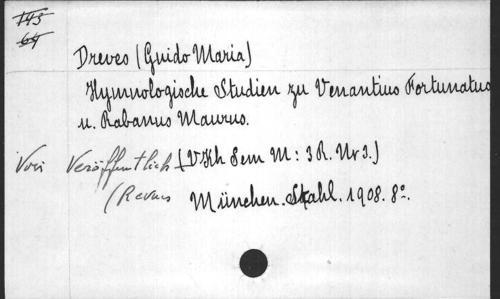 145
64
Dreves (Guido Maria)
Hymnologische Studien zu Venantius Fortunatus
u. Rabanus Maurus.
Veröffentlich (VKh Sem M: 3 R. Nr 3.)
München. Stahl. 1908. 8°.